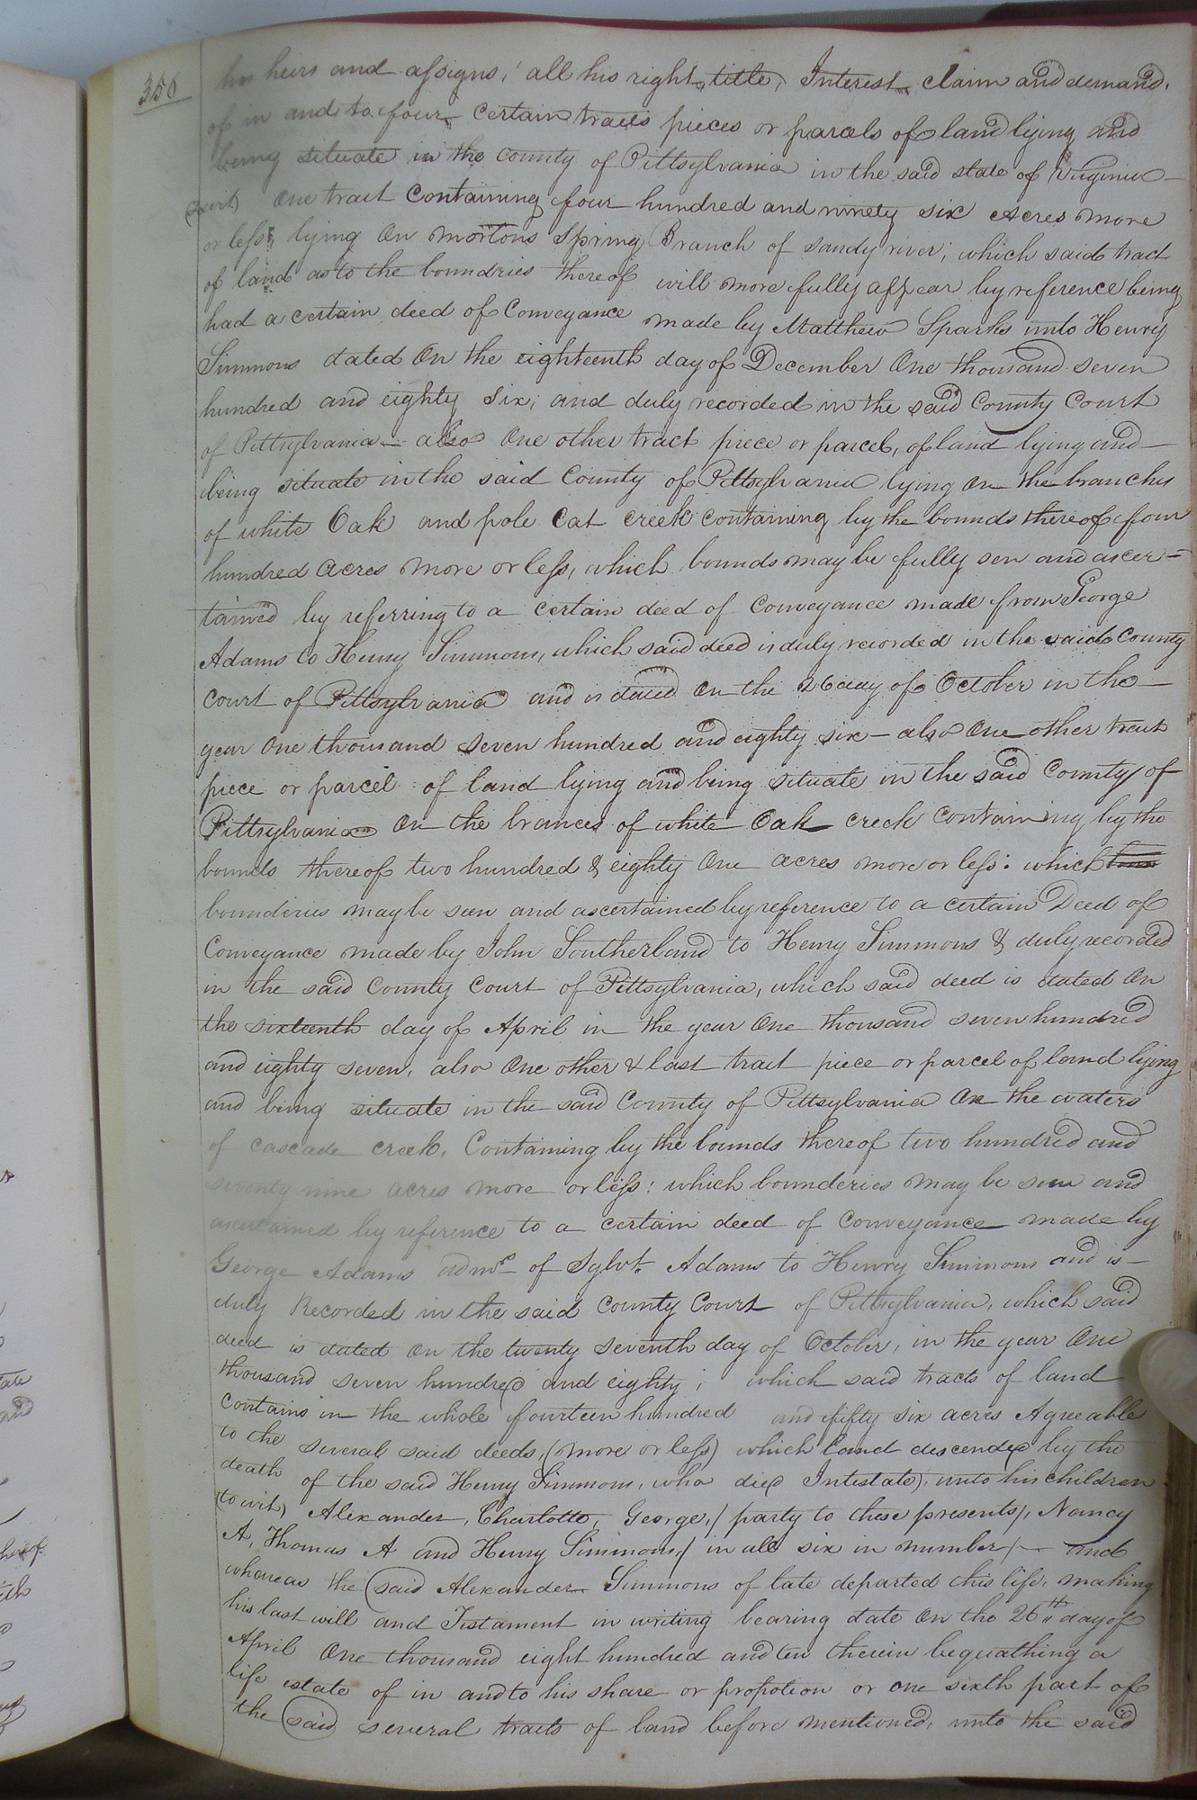 350
his heirs and assigns, all his right, title, Interest, claim and demand,
of in and to four certain tracts pieces or parcels of land lying and
being situate in the county of Pittsylvania in the said state of Virginia
(towit) One tract Containing four hundred and ninety six Acres more
or less, lying On mortons Spring Branch of Sandy river; which said tract
of land as to the boundries thereof will more fully appear by reference being
had a certain deed of Conveyance made by Matthew Sparks unto Henry
Simmons dated On the eighteenth day of December One thousand seven
hundred and eighty Six; and duly recorded in the said County Court
of Pittsylvania – also One other tract piece or parcel, of land lying and
being situate in the said County of Pittsylvania lying On the branches
of white Oak and pole Cat Creek containing by the bounds thereof four
hundred Acres more or less, which bounds may be fully sen and ascer-
tained by referring to a certain deed of conveyance made from George
Adams to Henry Simmons, which said deed is duly recorded in the said County
Court of Pittsylvania and is dated On the 26 day of October in the
year One thousand seven hundred and eighty six – also One other tract
piece or parcel of land lying and being situate in the said County of
Pittsylvania On the brances of white Oak creek Containing by the
bounds thereof two hundred & eighty One acres more or less: which
bounderies may be seen and ascertained by reference to a certain Deed of
Conveyance made by John Southerland to Henry Simmons & duly recorded
in the said County Court of Pittsylvania, which said deed is dated On
the sixteenth day of April in the year One thousand seven hundred
and eighty seven, also One other & last tract piece or parcel of land lying
and being situate in the said County of Pittsylvania On the waters
of cascade creek, Containing by the bounds thereof two hundred and
seventy nine acres more or less: which bounderies may be seen and
ascertained by reference to a certain deed of Conveyance made by
George Adams admr of Sylvt Adams to Henry Simmons and is –
duly Recorded in the said County Court of Pittsylvania, which said
deed is dated On the twenty seventh day of October, in the year One
thousand seven hundred and eighty; which said tracts of land
Contains in the whole fourteen hundred and fifty six acres Agreeable
to the several said deeds, (more or less) which land descended by the
death of the said Henry Simmons, who died Intestate, unto his children
(to wit) Alexander, Charlotte, George, / party to these presents /, Nancy
A, Thomas A and Henry Simmons, / in all six in number / – and
whereas the said Alexander Simmons of late departed this life, making
his last will and Testament in writing bearing date On the 26th day of
April One thousand eight hundred and ten therein bequathing a
life estate of in and to his share or propotion or one sixth part of
the said several tracts of land before mentioned, unto the said